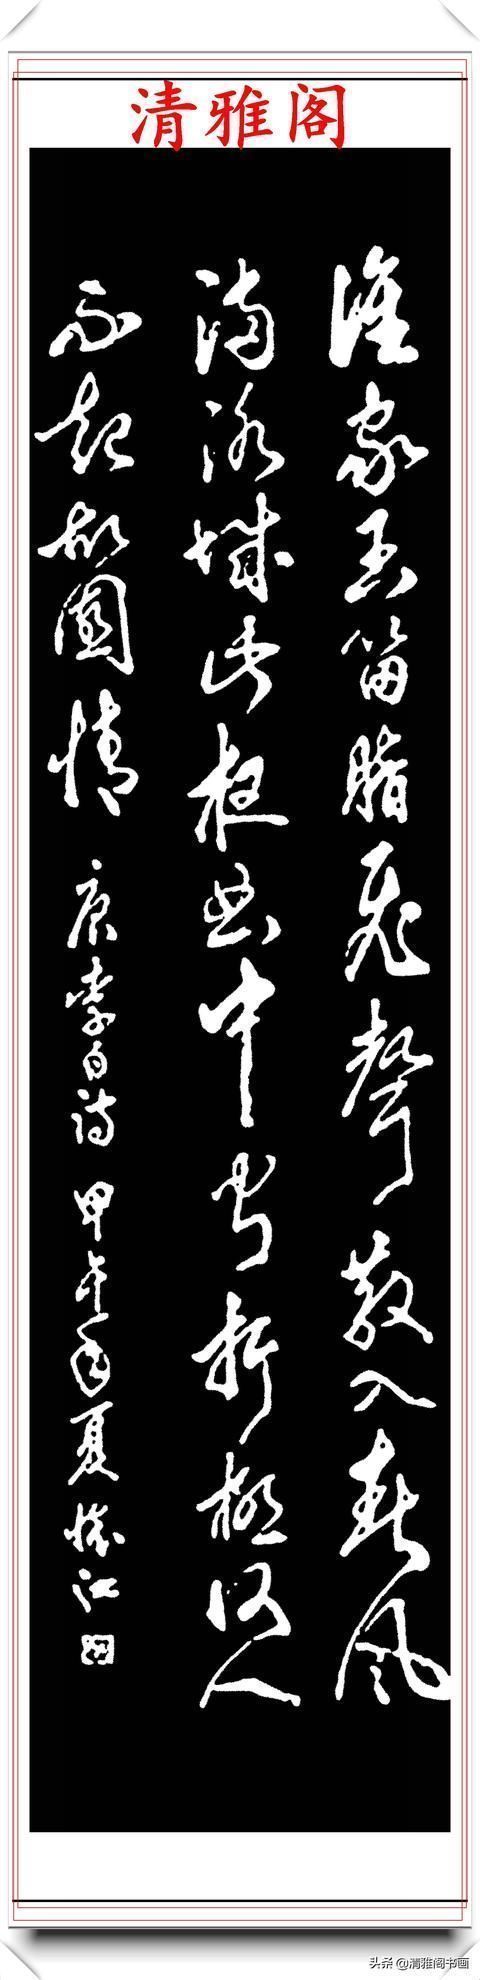 清雅阁
誰家玉笛暗飛聲散入春風
滿洛城此夜曲中聞折柳何人
不起故園情 唐李白詩 甲午年夏 江
头条 @清雅阁书画